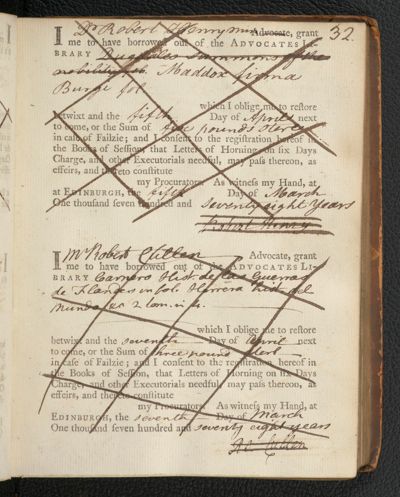 32
I Dr Robert Henry Advocate, grant
me to have borrowed out of the ADVOCATES LI-
BRARY Dugdales Summons of the
nobility fol. Maddox firma
Burgi fol
which I oblige me to reſtore
betwixt and the fifth Day of April next
to come, or the Sum of five pounds Sterl
in caſe of Failzie; and I conſent to the regiſtration hereof in
the Books of Seſſion, that Letters of Horning on ſix Days
Charge, and other Executorials needful, may paſs thereon, as
effeirs, and thereto conſtitute
my Procurators. As witneſs my Hand, at
at EDINBURGH, the fifth Day of March
One thouſand ſeven hundred and Seventy eight Years
Robert Henry
I Mr Robert Cullen Advocate, grant
me to have borrowed out of the ADVOCATES LI-
BRARY Carnero Hist de las Guerras
de Flandes in fol. Herrera hist del
mundo 2 tom.
which I oblige me to reſtore
betwixt and the seventh Day of April next
to come, or the Sum of three pound Sterl
in caſe of Failzie; and I conſent to the regiſtration hereof in
the Books of Seſſion, that Letters of Horning on ſix Days
Charge, and other Executorials needful, may paſs thereon, as
effeirs, and thereto conſtitute
my Procurators. As witneſs my Hand, at
EDINBURGH, the seventh Day of March
One thouſand ſeven hundred and seventy eight years
Ro Cullen